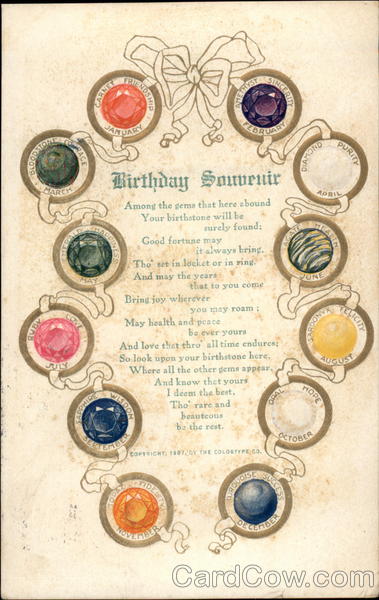 GARNET FRIENDSHIP
JANUARY
AMETHYST SINCERITY
FEBRUARY
BLOODSTONE
MARCH
DIAMOND PURITY
APRIL
Birthday Souvenir
Among the gems that here abound
Your birthstone will be
surely found;
Good fortune may
it always bring,
Tho' set in locket or in ring.
And may the years
that to you come
Bring joy wherever
you may roam;
May health and peace
be ever yours
And love that thro' all time endures;
So look upon your birthstone here,
Where all the other gems appear,
And know that yours
I deem the best,
Tho' rare and
beauteous
be the rest.
HAPPINESS
MAY
AGATE HEALTH
JUNE
RUBY LOVE
JULY
SARDONYX FELICITY
AUGUST
SAPPHIRE WISDOM
SEPTEMBER
OPAL HOPE
OCTOBER
COPYRIGHT, 1907, BY THE COLORTYPE CO.
NOVEMBER
TURQUOISE SUCCESS
DECEMBER
CardCow.com